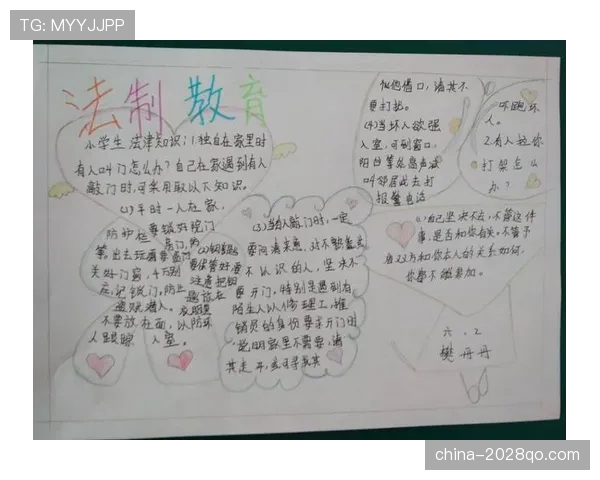 TG: MYYJJPP
法制教育
小学生法律知识：1独自在家里时
有人叫门怎么办？自己在家遇到有人
敲门时，可采用取以下知识。
(1)平时一人在家，
要锁好院门
防护栏
关好门窗，千万别
忘记锁门，防止
盗贼潜入。
不要放在面，以防坏
人跟踪
入室。
(3)当有人敲门时，一定
要问清来意，对不熟悉或
不认识的人，坚决不
要开门，特别是遇到有
陌生人以修理工，推
销员的身份要求开门时
说明家里不需要，请
其走开，
似他借口，请其不
要打扰。
(4)当坏人欲强
入室，可到窗口，
阳台等处高声
叫邻居或去打
报警电话
吓跑坏
人。
2.有人拉你
打架怎么
办？
(1)自己坚决不去，不管这件
事，是否和你有关。不管
对方和你本人的关系如何，
你要不能参加。
六.2
樊丹丹
china-2028qo.com